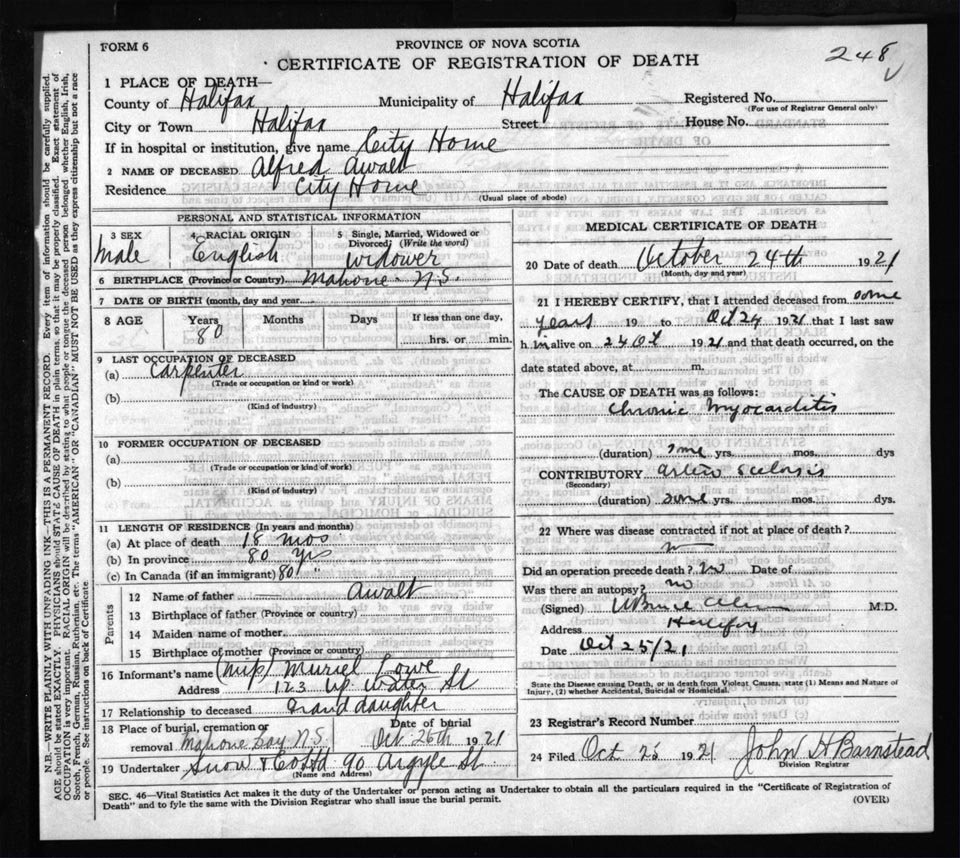 FORM 6
PROVINCE OF NOVA SCOTIA
248
CERTIFICATE OF REGISTRATION OF DEATH
1 PLACE OF DEATH—
County of Halifax Municipality of Halifax Registered No.
(For use of Registrar General only)
City or Town Halifax Street House No.
If in hospital or institution, give name City Home
2 NAME OF DECEASED Alfred Awalt
Residence City Home
(Usual place of abode)
PERSONAL AND STATISTICAL INFORMATION
3 SEX Male
4 RACIAL ORIGIN English
5 Single, Married, Widowed or Divorced; (Write the word) widower
6 BIRTHPLACE (Province or Country) Mahone N.S.
7 DATE OF BIRTH (month, day and year)
8 AGE Years 80 Months Days If less than one day, hrs. or min.
9 LAST OCCUPATION OF DECEASED
(a) Carpenter
(Trade or occupation or kind or work)
(b)
(Kind of industry)
10 FORMER OCCUPATION OF DECEASED
(a)
(Trade or occupation or kind or work)
(b)
(Kind of industry)
11 LENGTH OF RESIDENCE (In years and months)
(a) At place of death 18 mos
(b) In province 80 yrs
(c) In Canada (if an immigrant) 80 "
Parents
12 Name of father — Awalt
13 Birthplace of father (Province or country)
14 Maiden name of mother
15 Birthplace of mother (Province or country)
16 Informant's name (Miss) Muriel Lowe
Address 123 Up Water St
17 Relationship to deceased Grand daughter
18 Place of burial, cremation or removal Mahone Bay N.S.
Date of burial Oct 26th 1921
19 Undertaker Snow & Co Ltd 90 Argyle St
(Name and Address)
MEDICAL CERTIFICATE OF DEATH
20 Date of death October 24th 1921
(Month, day and year)
21 I HEREBY CERTIFY, that I attended deceased from some
years 19 to Oct 24 1921 that I last saw
h im alive on 24 Oct 1921 and that death occurred, on the
date stated above, at m.
The CAUSE OF DEATH was as follows:
Chronic Myocarditis
(duration) some yrs. mos. dys
CONTRIBUTORY arterio sclerosis
(Secondary)
(duration) some yrs. mos. dys.
22 Where was disease contracted if not at place of death?
Did an operation precede death? no Date of
Was there an autopsy? no
(Signed) M.D.
Address Halifax
Date Oct 25/21
State the Disease causing Death, or in death from Violent Causes, state (1) Means and Nature of
Injury, (2) whether Accidental, Suicidal or Homicidal.
23 Registrar's Record Number
24 Filed Oct 25 1921 John H Barnstead
Division Registrar
SEC. 46—Vital Statistics Act makes it the duty of the Undertaker or person acting as Undertaker to obtain all the particulars required in the "Certificate of Registration of
Death" and to fyle the same with the Division Registrar who shall issue the burial permit.
(OVER)
N.B.—WRITE PLAINLY WITH UNFADING INK—THIS IS A PERMANENT RECORD. Every item of information should be carefully supplied.
AGE should be stated EXACTLY. PHYSICIANS should STATE CAUSE OF DEATH in plain terms, so that it may be properly classified. Exact statement of
OCCUPATION is very important. RACIAL ORIGIN will be described by stating to what people or tongue the deceased person belonged whether English, Irish,
Scotch, French, German, Russian, Ruthenian, etc. The terms "AMERICAN" OR "CANADIAN" MUST NOT BE USED as they express citizenship but not a race
or people. See instructions on back of Certificate